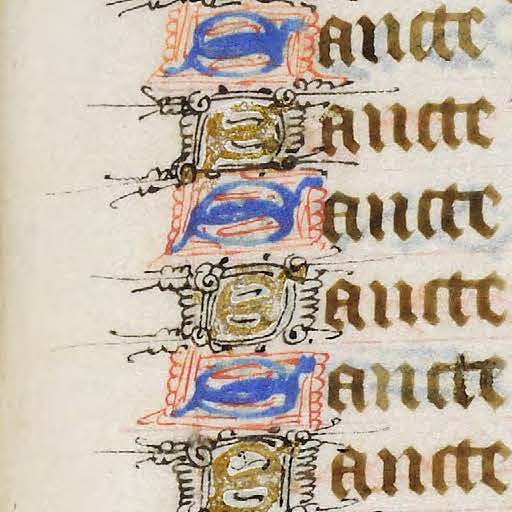 Sancte
Sancte
Sancte
Sancte
Sancte
Sancte